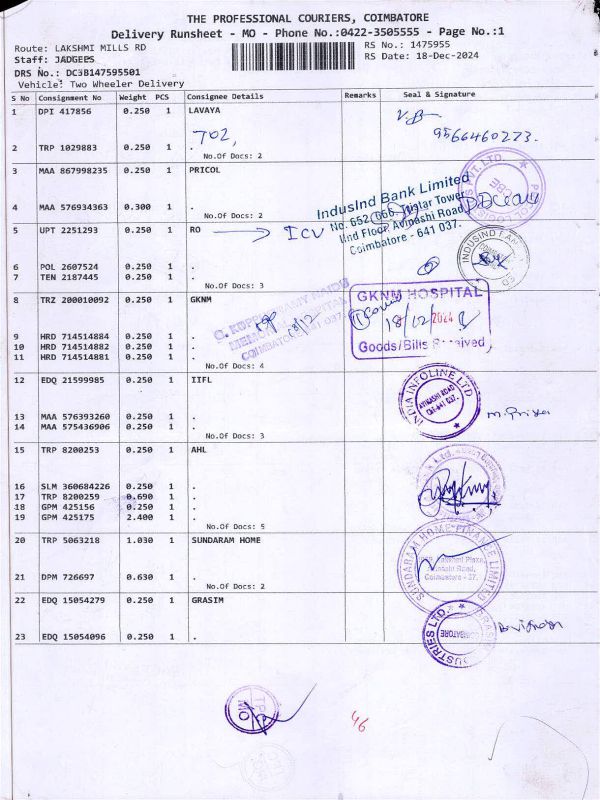 THE PROFESSIONAL COURIERS, COIMBATORE
Delivery Runsheet - MO - Phone No.:0422-3505555 - Page No.:1
Route: LAKSHMI MILLS RD
RS No.: 1475955
Staff: JADGEES
RS Date: 18-Dec-2024
DRS No.: DC3B147595501
Vehicle: Two Wheeler Delivery
S No Consignment No Weight PCS Consignee Details Remarks Seal & Signature
1 DPI 417856 0.250 1 LAVAYA
702,
9566460273.
2 TRP 1029883 0.250 1 .
No.Of Docs: 2
3 MAA 867998235 0.250 1 PRICOL
4 MAA 576934363 0.300 1 .
No.Of Docs: 2
IndusInd Bank Limited
No. 652 - 666, Tristar Tower
IInd Floor, Avinashi Road,
Coimbatore - 641 037.
5 UPT 2251293 0.250 1 RO
ICU
6 POL 2607524 0.250 1 .
7 TEN 2187445 0.250 1 .
No.Of Docs: 3
8 TRZ 200010092 0.250 1 GKNM
GKNM HOSPITAL
18/12/2024
Goods/Bills Received
9 HRD 714514884 0.250 1 .
10 HRD 714514882 0.250 1 .
11 HRD 714514881 0.250 1 .
No.Of Docs: 4
12 EDQ 21599985 0.250 1 IIFL
INDIA INFOLINE LTD
AVINASHI ROAD
M. Priya
13 MAA 576393260 0.250 1 .
14 MAA 575436906 0.250 1 .
No.Of Docs: 3
15 TRP 8200253 0.250 1 AHL
16 SLM 360684226 0.250 1 .
17 TRP 8200259 0.690 1 .
18 GPM 425156 0.250 1 .
19 GPM 425175 2.400 1 .
No.Of Docs: 5
20 TRP 5063218 1.030 1 SUNDARAM HOME
SUNDARAM HOME FINANCE LIMITED
Avinashi Road,
Coimbatore - 37.
21 DPM 726697 0.630 1 .
No.Of Docs: 2
22 EDQ 15054279 0.250 1 GRASIM
23 EDQ 15054096 0.250 1 .
46